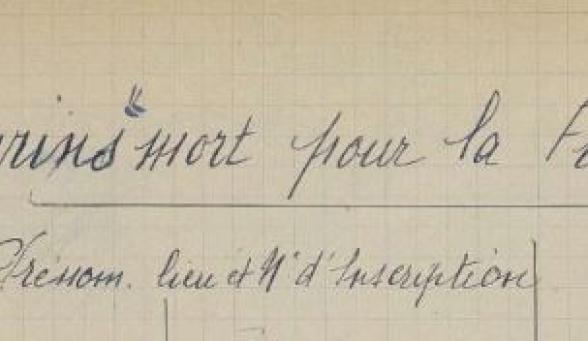 rins" mort pour la
Prénom. lieu et N° d'Inscription